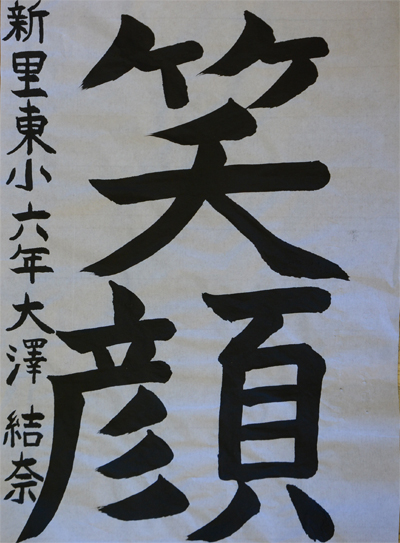 笑顔
新里東小六年大澤結奈